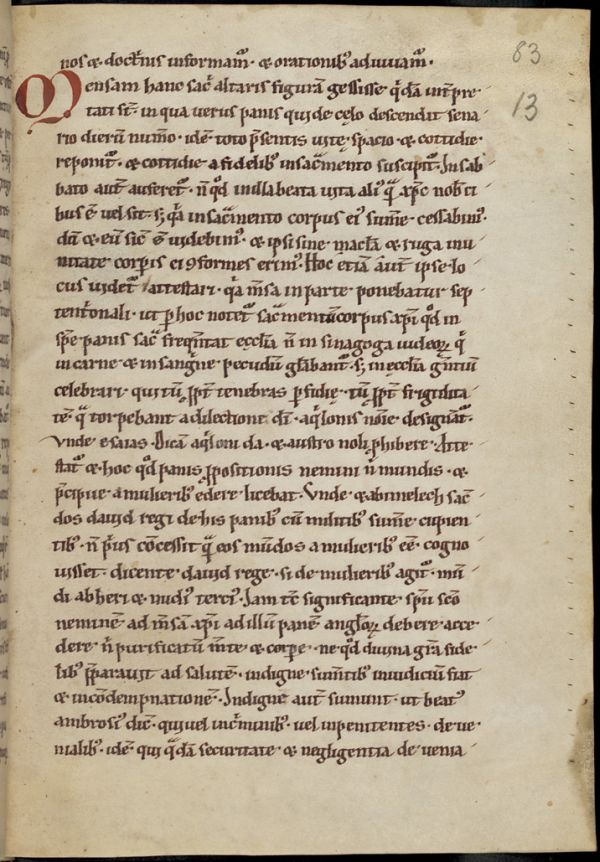 nos & doctrinis informam᷒. & orationib; adiuuam᷒.
83
Mensam hanc sac̃ altaris figurã gessisse q̃dã int̃pre
13
tati st̃. in qua uerus panis qui de cęlo descendit sena
rio dierũ num̃o. idẽ toto p̃sentis uitę spacio. & cottidie
reponit᷒. & cottidie a fidelib; in sac̃mento suscipit᷒. In sab
bato aut̃ auferet᷒. ñ qđ in illa beata uita ali᷒ q̃ xp̃c nob̃ ci
bus ẽ uel sit. s; q̃a in sac̃mento corpus ei᷒ sum̃e cessabim᷒.
dũ & eũ sic̃ ẽ uidebim᷒. & ipsi sine mac̃la & ruga in u
nitate corp̃is ei ꝯformes erim᷒. Hoc etiã aut̃ ipse lo
cus uidet᷒ attestari. q̃a m̃sa in parte ponebatur sep
tent̃onali. ut p̃ hoc notet᷒ sac̃mentũ corpus xp̃i qđ in
sp̃e panis sac̃ freq̃ntat eccl̃ia ñ in sinagoga iudeoꝝ q̃
in carne & in sang̃ne pecudum gl̃abant᷒. s; in eccl̃ia g̃ntiũ
celebrari. qui tũ ꝓpt̃ tenebras p̃fidię. tũ ꝓpt̃ frigidita
tẽ q̃ torpebant a dilectione dĩ. aq̃lonis noĩe designãt᷒.
Vnde esaias. Dicã aq̃loni da. & austro noli ꝓhibere. Atte
stat᷒ & hoc qđ panis ꝓpositionis nemini ñ mundis. &
p̃cipue a mulierib; edere licebat. Vnde & abimelech sac̃
dos dauid regi de his panib; cũ militib; sum̃e cupien
tib;. ñ p̃us cõcessit q̃ eos mũdos a mulierib; eẽ. cogno
uisset. dicente dauid rege. si de mulierib; agit᷒. mũ
di ab heri & nudi᷒ terci᷒. Iam tc̃ significante sp̃u sc̃o
neminẽ ad m̃sã xp̃i ad illũ panẽ angl̃oꝝ debere acce
dere ñ purificatũ m̃te & corp̃e. ne qđ diuina gr̃a fide
lib; p̃parauit ad salutẽ. indigne sum̃tib; in iudiciũ fiat
& in cõdempnationẽ. Indigne aut̃ sumunt. ut beat᷒
ambrosi᷒ dic̃. qui uel in c̃minib;. uel inpenitentes. de ue
nialib;. idẽ qui q̃dã securitate & negligentia de uenia